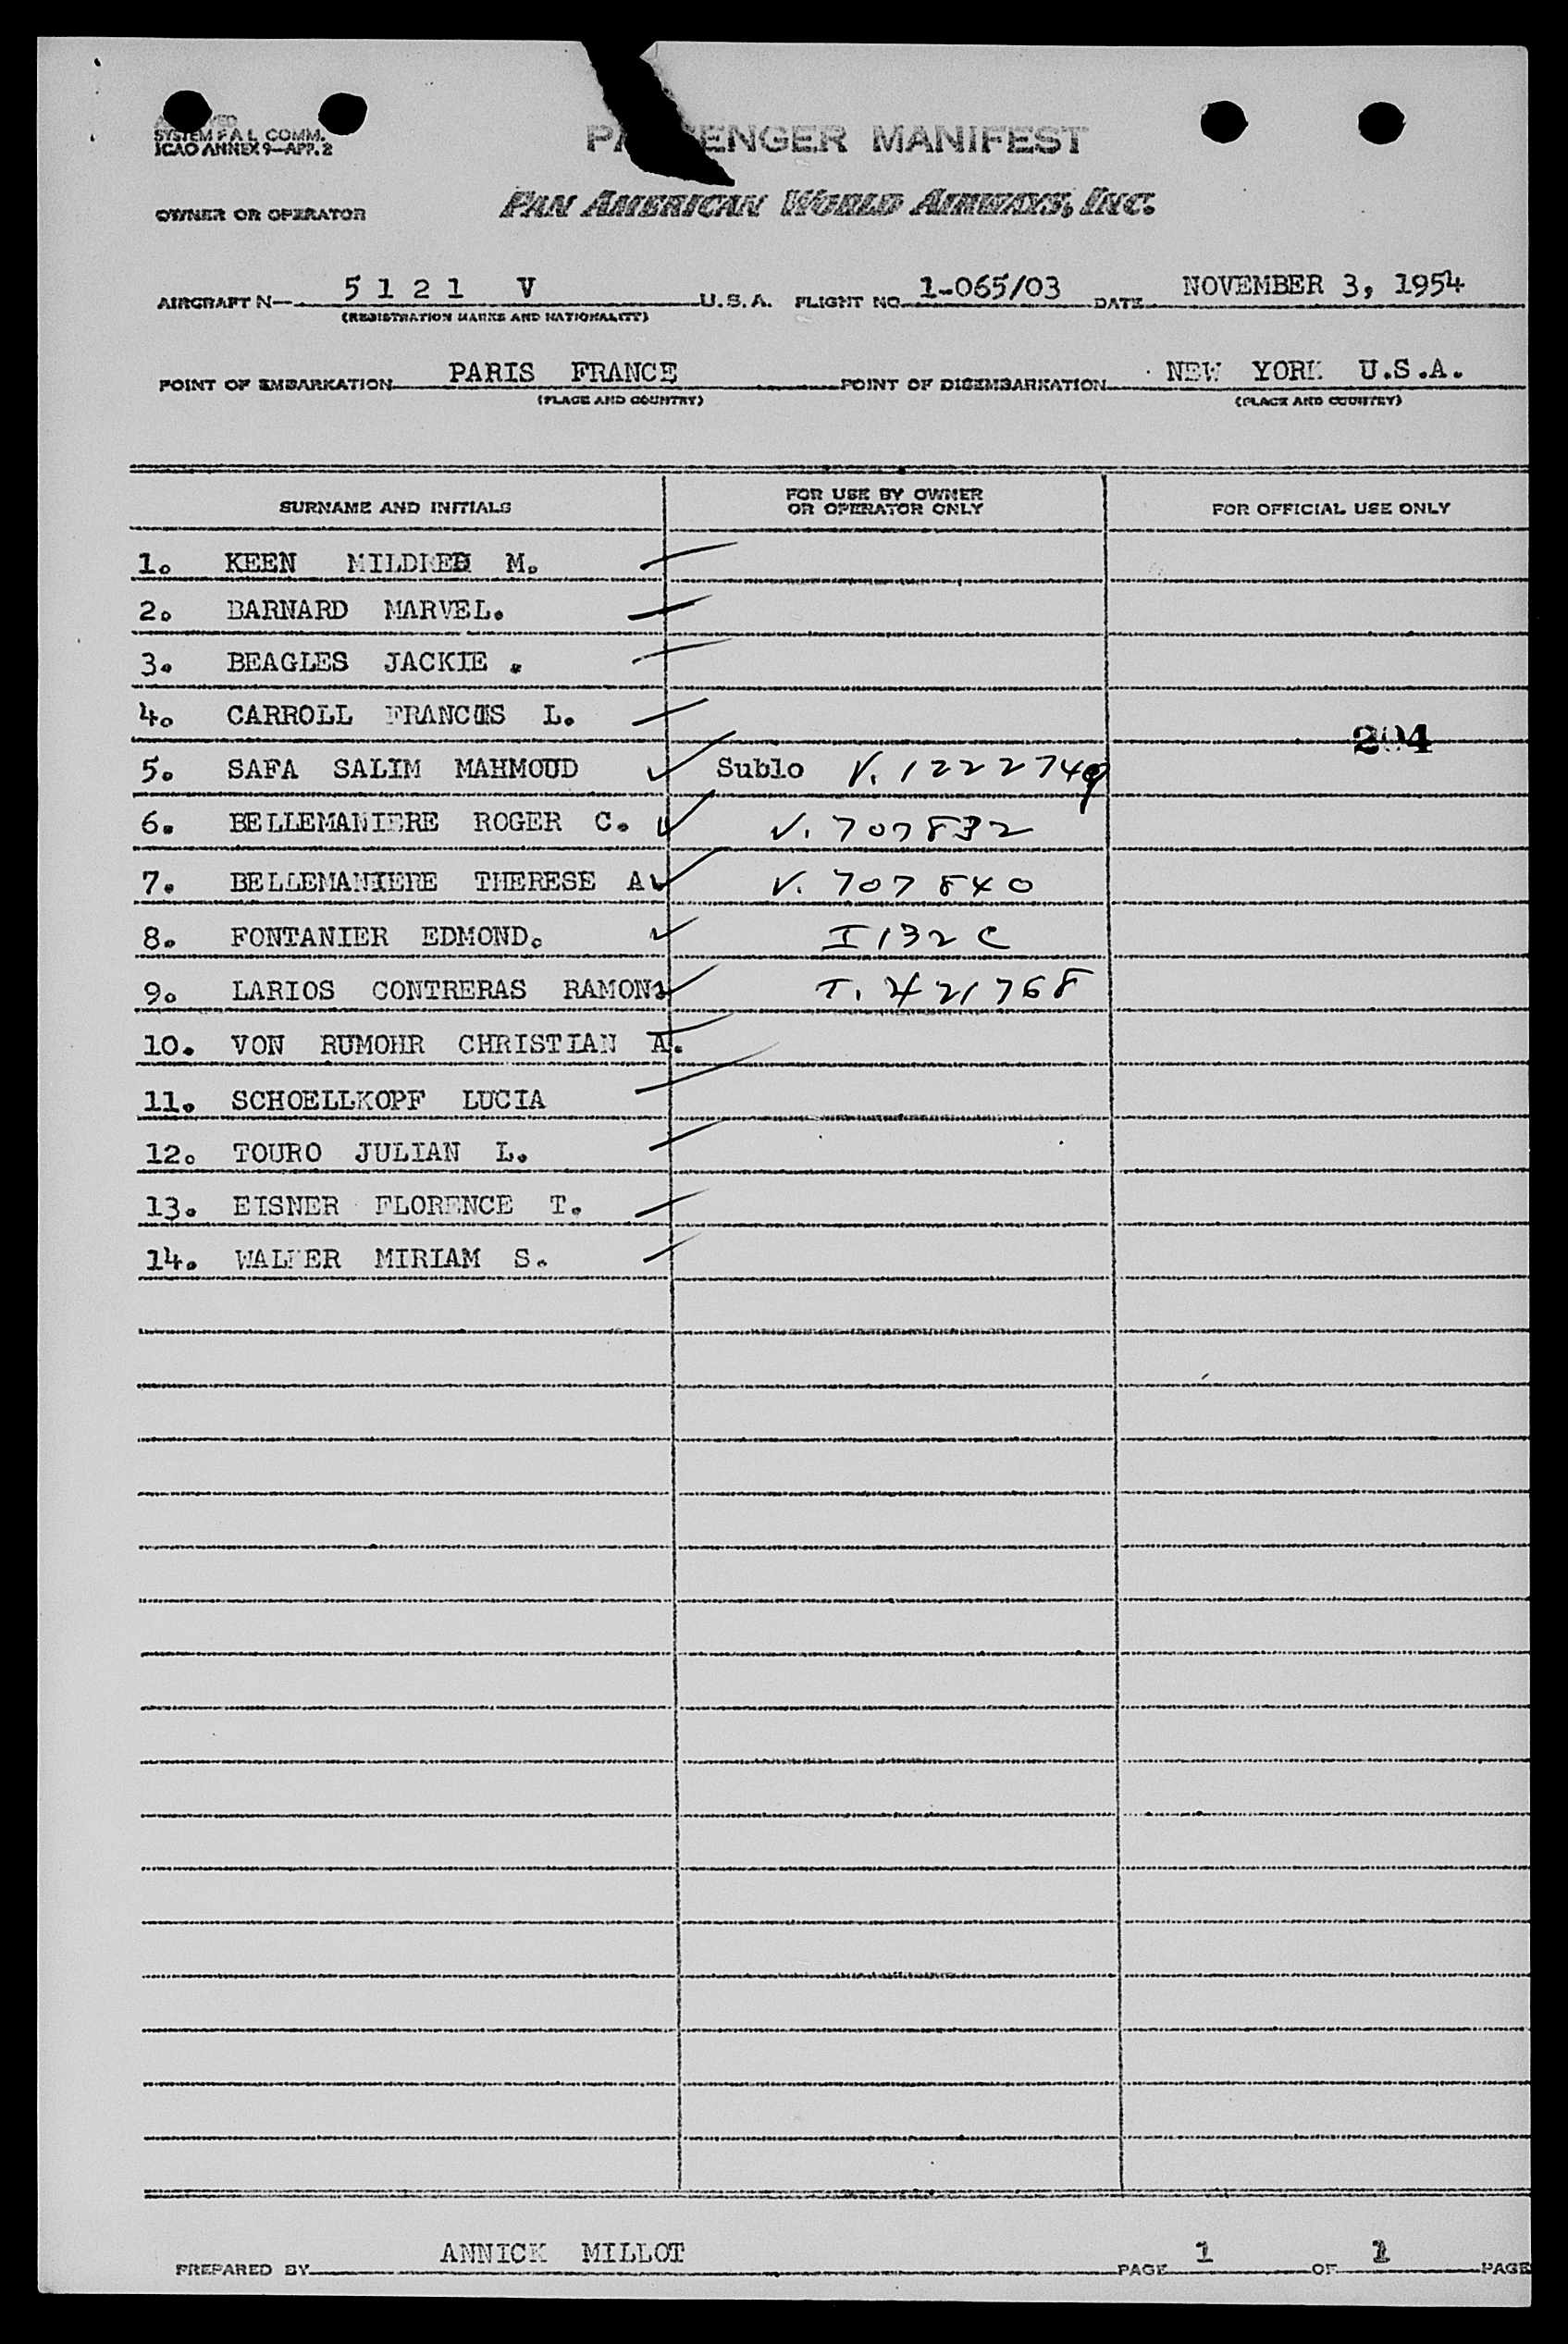 SYSTEM F A L COMM.
ICAO ANNEX 9—APP. 2
PASSENGER MANIFEST
OWNER OR OPERATOR PAN AMERICAN WORLD AIRWAYS, INC.
AIRCRAFT N— 5 1 2 1 V U.S.A. FLIGHT NO. 1-065/03 DATE NOVEMBER 3, 1954
(REGISTRATION MARKS AND NATIONALITY)
POINT OF EMBARKATION PARIS FRANCE POINT OF DISEMBARKATION NEW YORK U.S.A.
(PLACE AND COUNTRY) (PLACE AND COUNTRY)
SURNAME AND INITIALS FOR USE BY OWNER OR OPERATOR ONLY FOR OFFICIAL USE ONLY
1. KEEN MILDRED M.
2. BARNARD MARVEL.
3. BEAGLES JACKIE .
4. CARROLL FRANCIS L.
204
5. SAFA SALIM MAHMOUD Sublo V. 1222749
6. BELLEMANIERE ROGER C. V. 707832
7. BELLEMANIERE THERESE A V. 707840
8. FONTANIER EDMOND. I 132 C
9. LARIOS CONTRERAS RAMON T. 421768
10. VON RUMOHR CHRISTIAN A.
11. SCHOELLKOPF LUCIA
12. TOURO JULIAN L.
13. EISNER FLORENCE T.
14. WALKER MIRIAM S.
PREPARED BY ANNICK MILLOT PAGE 1 OF 1 PAGE